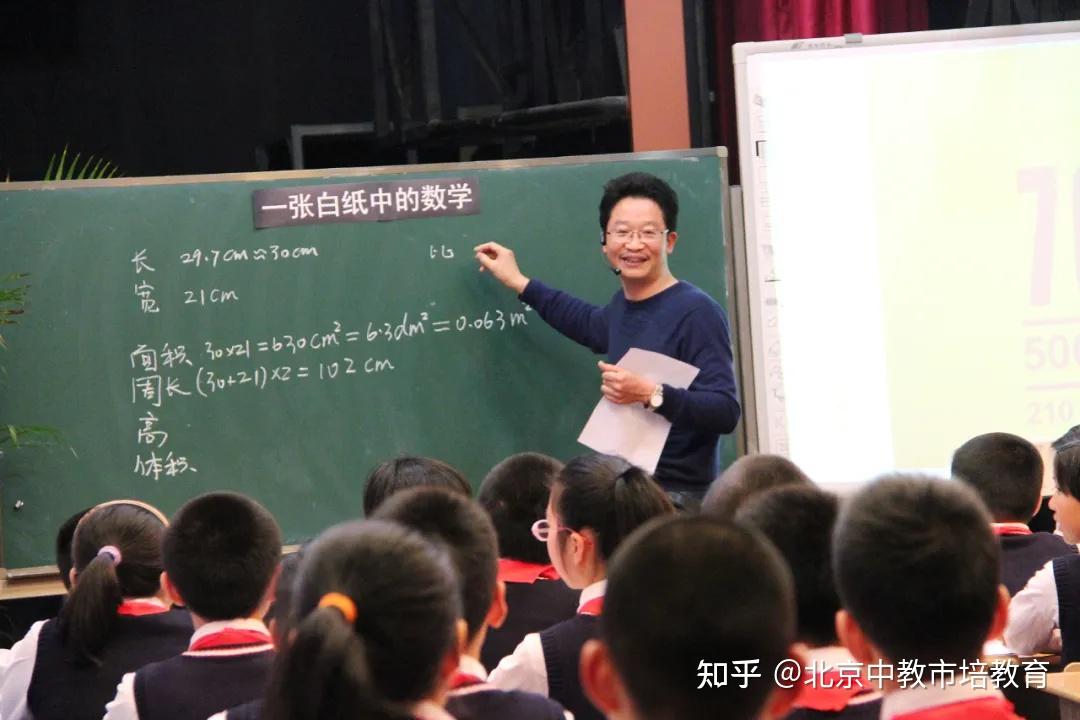 一张白纸中的数学
长 29.7cm≈30cm
比
宽 21cm
面积 30×21=630cm²=6.3dm²=0.063m²
周长(30+21)×2=102cm
高
体积
500
210
知乎 @北京中教市培教育